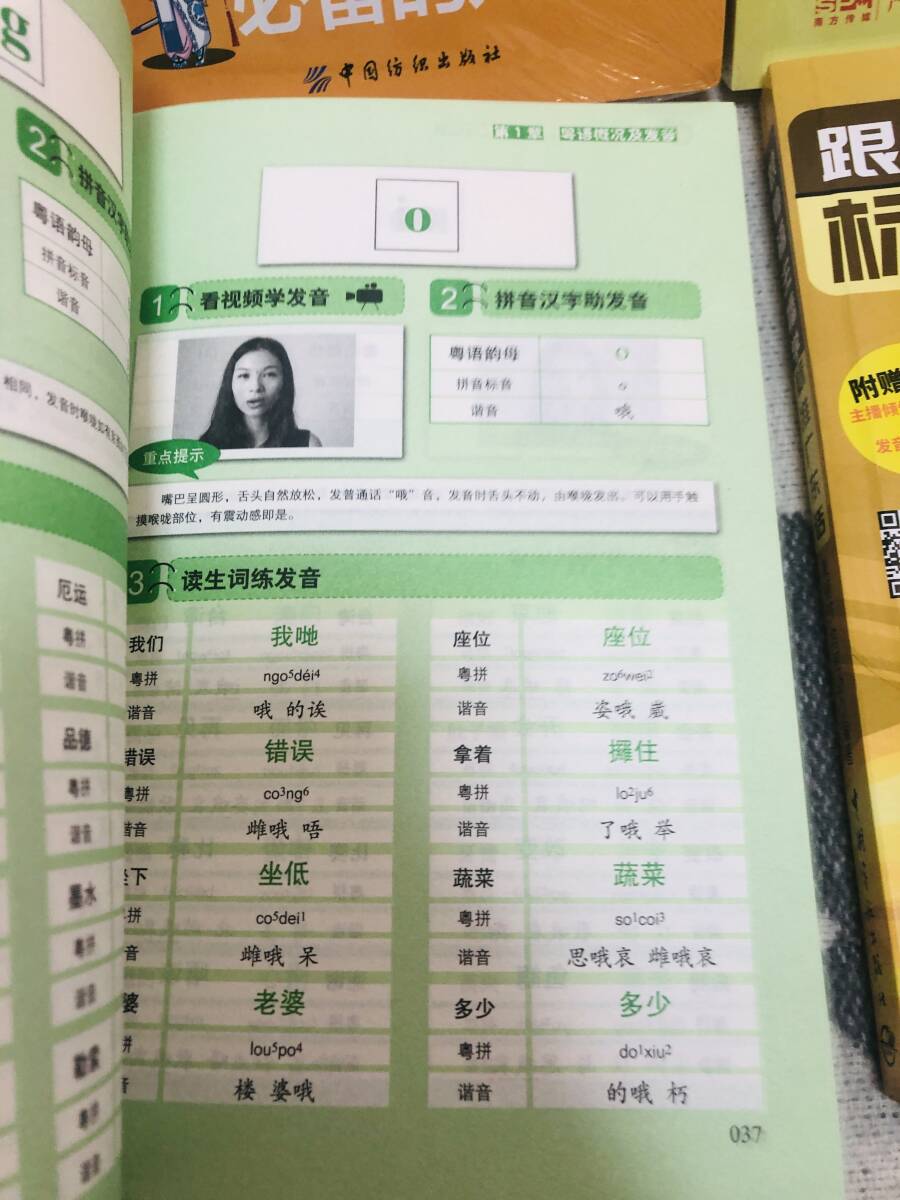 中国纺织出版社
南方传媒
g
2
拼音汉字
粤语韵母
拼音标音
谐音
厄运
粤拼
谐音
品德
粤拼
谐音
墨水
粤拼
谐音
勒索
粤拼
谐音
第1章 粤语概况及发音
o
1 看视频学发音
2 拼音汉字助发音
粤语韵母 o
拼音标音 o
谐音 哦
重点提示
嘴巴呈圆形，舌头自然放松，发普通话“哦”音，发音时舌头不动，由喉咙发出。可以用手触
摸喉咙部位，有震动感即是。
3 读生词练发音
我们 我哋 座位 座位
粤拼 ngo5déi4 粤拼 zo6wei2
谐音 哦 的诶 谐音 姿哦 葳
错误 错误 拿着 攞住
粤拼 co3ng6 粤拼 lo2ju6
谐音 雌哦 唔 谐音 了哦 举
坐下 坐低 蔬菜 蔬菜
粤拼 co5dei1 粤拼 so1coi3
谐音 雌哦 呆 谐音 思哦哀 雌哦哀
老婆 多少 多少
lou5po4 粤拼 do1xiu2
楼 婆哦 谐音 的哦 朽
037
跟
标
附赠
发音